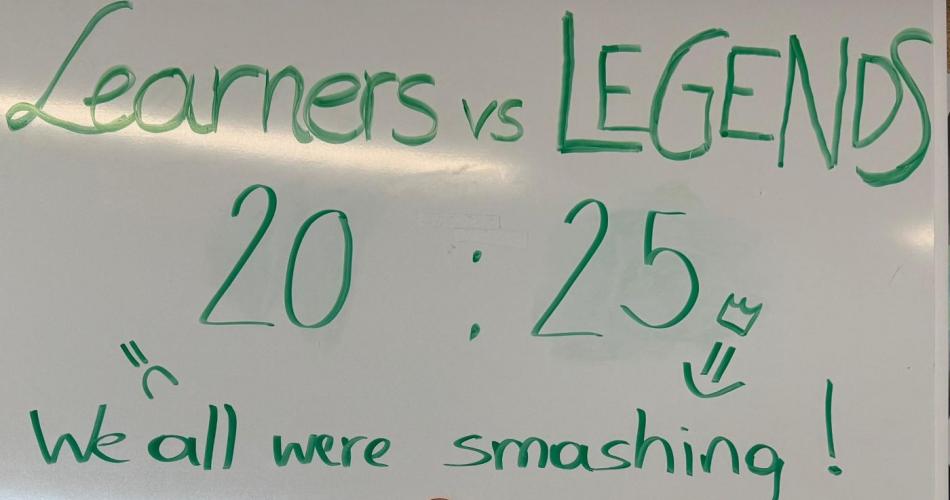 Learners vs LEGENDS
20 : 25
We all were smashing!